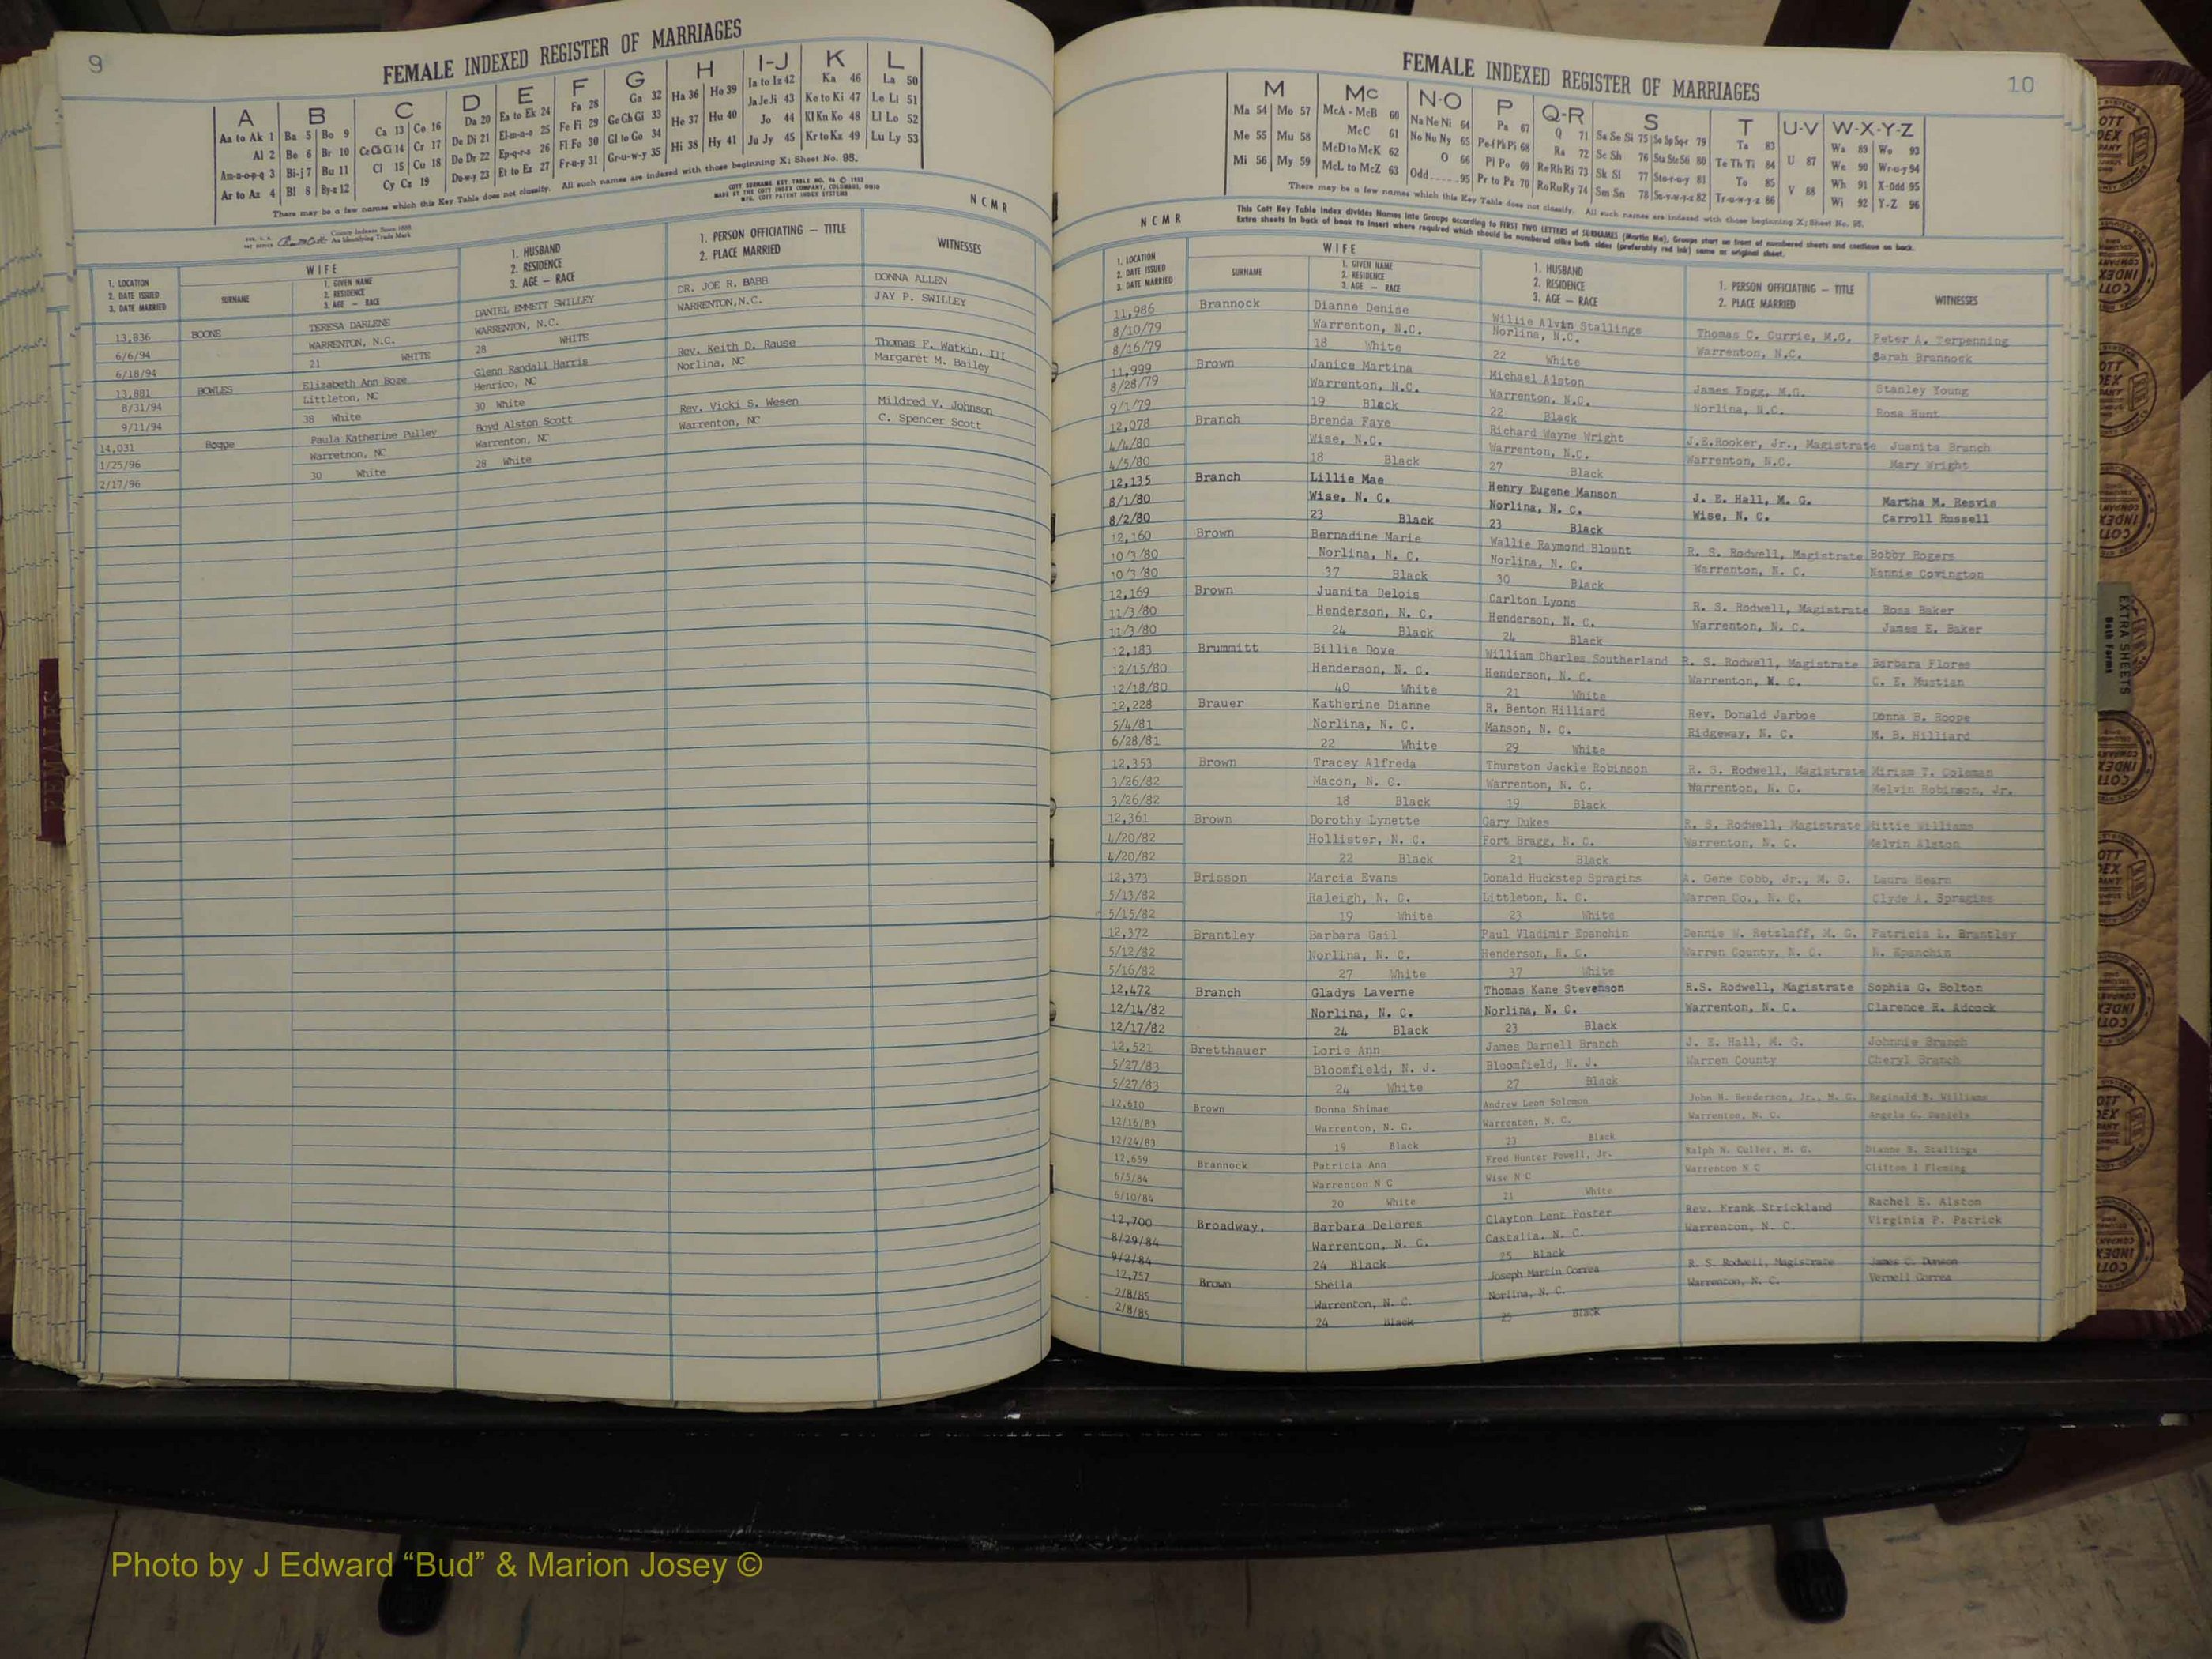 9
FEMALE INDEXED REGISTER OF MARRIAGES
A B C D E F G H I-J K L
Aa to Ak 1 Ba 5 Bo 9 Ca 13 Co 16 Da 20 Ea to Ek 24 Fa 28 Ga 32 Ha 36 Ho 39 Ia to Iz 42 Ka 46 La 50
Al 2 Be 6 Br 10 Ce Ch Ci 14 Cr 17 De Di 21 El-m-n-o 25 Fe Fi 29 Ge Gh Gi 33 He 37 Hu 40 Ja Je Ji 43 Ke to Ki 47 Le Li 51
Am-n-o-p-q 3 Bi-j 7 Bu 11 Cl 15 Cu 18 Do Dr 22 Ep-q-r-s 26 Fl Fo 30 Gl to Go 34 Hi 38 Hy 41 Jo 44 Kl Kn Ko 48 Ll Lo 52
Ar to Az 4 Bl 8 By-z 12 Cy Cz 19 Du-w-y 23 Et to Ez 27 Fr-u-y 31 Gr-u-w-y 35 Ju Jy 45 Kr to Kz 49 Lu Ly 53
There may be a few names which this Key Table does not classify. All such names are indexed with those beginning X; Sheet No. 95.
COTT SURNAME KEY TABLE NO. 96 ©
MADE BY THE COTT INDEX COMPANY, COLUMBUS, OHIO
MFG. COTT PATENT INDEX SYSTEMS
N C M R
County Indexes Since 1888
An Identifying Trade Mark
1. LOCATION
2. DATE ISSUED
3. DATE MARRIED
WIFE
SURNAME
1. GIVEN NAME
2. RESIDENCE
3. AGE — RACE
1. HUSBAND
2. RESIDENCE
3. AGE — RACE
1. PERSON OFFICIATING — TITLE
2. PLACE MARRIED
WITNESSES
13,836 BOONE TERESA DARLENE DANIEL EMMETT SWILLEY DR. JOE R. BABB DONNA ALLEN
6/6/94 WARRENTON, N.C. WARRENTON, N.C. WARRENTON,N.C. JAY P. SWILLEY
6/18/94 21 WHITE 28 WHITE
13,881 BOWLES Elizabeth Ann Boze Glenn Randall Harris Rev. Keith D. Rause Thomas F. Watkin, III
8/31/94 Littleton, NC Henrico, NC Norlina, NC Margaret M. Bailey
9/11/94 38 White 30 White
14,031 Paula Katherine Pulley Boyd Alston Scott Rev. Vicki S. Wesen Mildred V. Johnson
1/25/96 Warretnon, NC Warrenton, NC Warrenton, NC C. Spencer Scott
2/17/96 30 White 28 White
FEMALES
10
FEMALE INDEXED REGISTER OF MARRIAGES
M Mc N-O P Q-R S T U-V W-X-Y-Z
Ma 54 Mo 57 McA - McB 60 Na Ne Ni 64 Pa 67 Q 71 Sa Se Si 75 So Sp Sq-r 79 Ta 83 U 87 Wa 89 Wo 93
Me 55 Mu 58 McC 61 No Nu Ny 65 Pe-f Ph Pi 68 Ra 72 Sc Sh 76 Sta Ste Sti 80 Te Th Ti 84 V 88 We 90 Wr-u-y 94
Mi 56 My 59 McD to McK 62 O 66 Pl Po 69 Re Rh Ri 73 Sk Sl 77 Sto-r-u-y 81 To 85 Wh 91 X-Odd 95
McL to McZ 63 Odd 95 Pr to Pz 70 Ro Ru Ry 74 Sm Sn 78 Su-v-w-y-z 82 Tr-u-w-y-z 86 Wi 92 Y-Z 96
There may be a few names which this Key Table does not classify. All such names are indexed with those beginning X; Sheet No. 95.
N C M R
This Cott Key Table Index divides Names into Groups according to FIRST TWO LETTERS of SURNAMES (Martin Ma), Groups start on front of numbered sheets and continue on back.
Extra sheets in back of book to insert where required which should be numbered alike both sides (preferably red ink) same as original sheet.
1. LOCATION
2. DATE ISSUED
3. DATE MARRIED
WIFE
SURNAME
1. GIVEN NAME
2. RESIDENCE
3. AGE — RACE
1. HUSBAND
2. RESIDENCE
3. AGE — RACE
1. PERSON OFFICIATING — TITLE
2. PLACE MARRIED
WITNESSES
11,986 Brannock Dianne Denise Willie Alvin Stallings Thomas C. Currie, M.G. Peter A. Terpenning
8/10/79 Warrenton, N.C. Norlina, N.C. Warrenton, N.C. Sarah Brannock
8/16/79 18 White 22 White
11,999 Brown Janice Martina Michael Alston James Fogg, M.G. Stanley Young
8/28/79 Warrenton, N.C. Warrenton, N.C. Norlina, N.C. Rosa Hunt
9/1/79 19 Black 22 Black
12,078 Branch Brenda Faye Richard Wayne Wright J.E.Rooker, Jr., Magistrate Juanita Branch
4/4/80 Wise, N.C. Warrenton, N.C. Warrenton, N.C. Mary Wright
4/5/80 18 Black 27 Black
12,135 Branch Lillie Mae Henry Eugene Manson J. E. Hall, M. G. Martha M. Resvis
8/1/80 Wise, N. C. Norlina, N. C. Wise, N. C. Carroll Russell
8/2/80 23 Black 23 Black
12,160 Brown Bernadine Marie Wallie Raymond Blount R. S. Rodwell, Magistrate Bobby Rogers
10/3/80 Norlina, N. C. Norlina, N. C. Warrenton, N. C. Nannie Covington
10/3/80 37 Black 30 Black
12,169 Brown Juanita Delois Carlton Lyons R. S. Rodwell, Magistrate Rosa Baker
11/3/80 Henderson, N. C. Henderson, N. C. Warrenton, N. C. James E. Baker
11/3/80 24 Black 24 Black
12,183 Brummitt Billie Dove William Charles Southerland R. S. Rodwell, Magistrate Barbara Flores
12/15/80 Henderson, N. C. Henderson, N. C. Warrenton, N. C. C. E. Mustian
12/18/80 40 White 21 White
12,228 Brauer Katherine Dianne R. Benton Hilliard Rev. Donald Jarboe Donna B. Roope
5/4/81 Norlina, N. C. Manson, N. C. Ridgeway, N. C. M. B. Hilliard
6/28/81 22 White 29 White
12,353 Brown Tracey Alfreda Thurston Jackie Robinson R. S. Rodwell, Magistrate Miriam T. Coleman
3/26/82 Macon, N. C. Warrenton, N. C. Warrenton, N. C. Melvin Robinson, Jr.
3/26/82 18 Black 19 Black
12,361 Brown Dorothy Lynette Gary Dukes R. S. Rodwell, Magistrate Mittie Williams
4/20/82 Hollister, N. C. Fort Bragg, N. C. Warrenton, N. C. Melvin Alston
4/20/82 22 Black 21 Black
12,373 Brisson Marcia Evans Donald Huckstep Spragins A. Gene Cobb, Jr., M. G. Laura Hearn
5/13/82 Raleigh, N. C. Littleton, N. C. Warren Co., N. C. Clyde A. Spragins
5/15/82 19 White 23 White
12,372 Brantley Barbara Gail Paul Vladimir Epanchin Dennis W. Retzlaff, M. G. Patricia L. Brantley
5/12/82 Norlina, N. C. Henderson, N. C. Warren County, N. C. N. Epanchin
5/16/82 27 White 37 White
12,472 Branch Gladys Laverne Thomas Kane Stevenson R.S. Rodwell, Magistrate Sophia G. Bolton
12/14/82 Norlina, N. C. Norlina, N. C. Warrenton, N. C. Clarence R. Adcock
12/17/82 24 Black 23 Black
12,521 Bretthauer Lorie Ann James Darnell Branch J. E. Hall, M. G. Johnnie Branch
5/27/83 Bloomfield, N. J. Bloomfield, N. J. Warren County Cheryl Branch
5/27/83 24 White 27 Black
12,610 Brown Donna Shimae Andrew Leon Solomon John H. Henderson, Jr., M. G. Reginald B. Williams
12/16/83 Warrenton, N. C. Warrenton, N. C. Warrenton, N. C. Angela G. Daniels
12/24/83 19 Black 23 Black
12,659 Brannock Patricia Ann Fred Hunter Powell, Jr. Ralph N. Culler, M. G. Dianne B. Stallings
6/5/84 Warrenton N C Wise N C Warrenton N C Clifton I Fleming
6/10/84 20 White 21 White
12,700 Broadway. Barbara Delores Clayton Lent Foster Rev. Frank Strickland Rachel E. Alston
8/29/84 Warrenton, N. C. Castalia. N. C. Warrenton, N. C. Virginia P. Patrick
9/2/84 24 Black 25 Black
12,757 Brown Sheila Joseph Martin Correa R. S. Rodwell, Magistrate James C. Dunson
2/8/85 Warrenton, N. C. Norlina, N. C. Warrenton, N. C. Vernell Correa
2/8/85 24 Black 25 Black
EXTRA SHEETS
Both Forms
Photo by J Edward “Bud” & Marion Josey ©